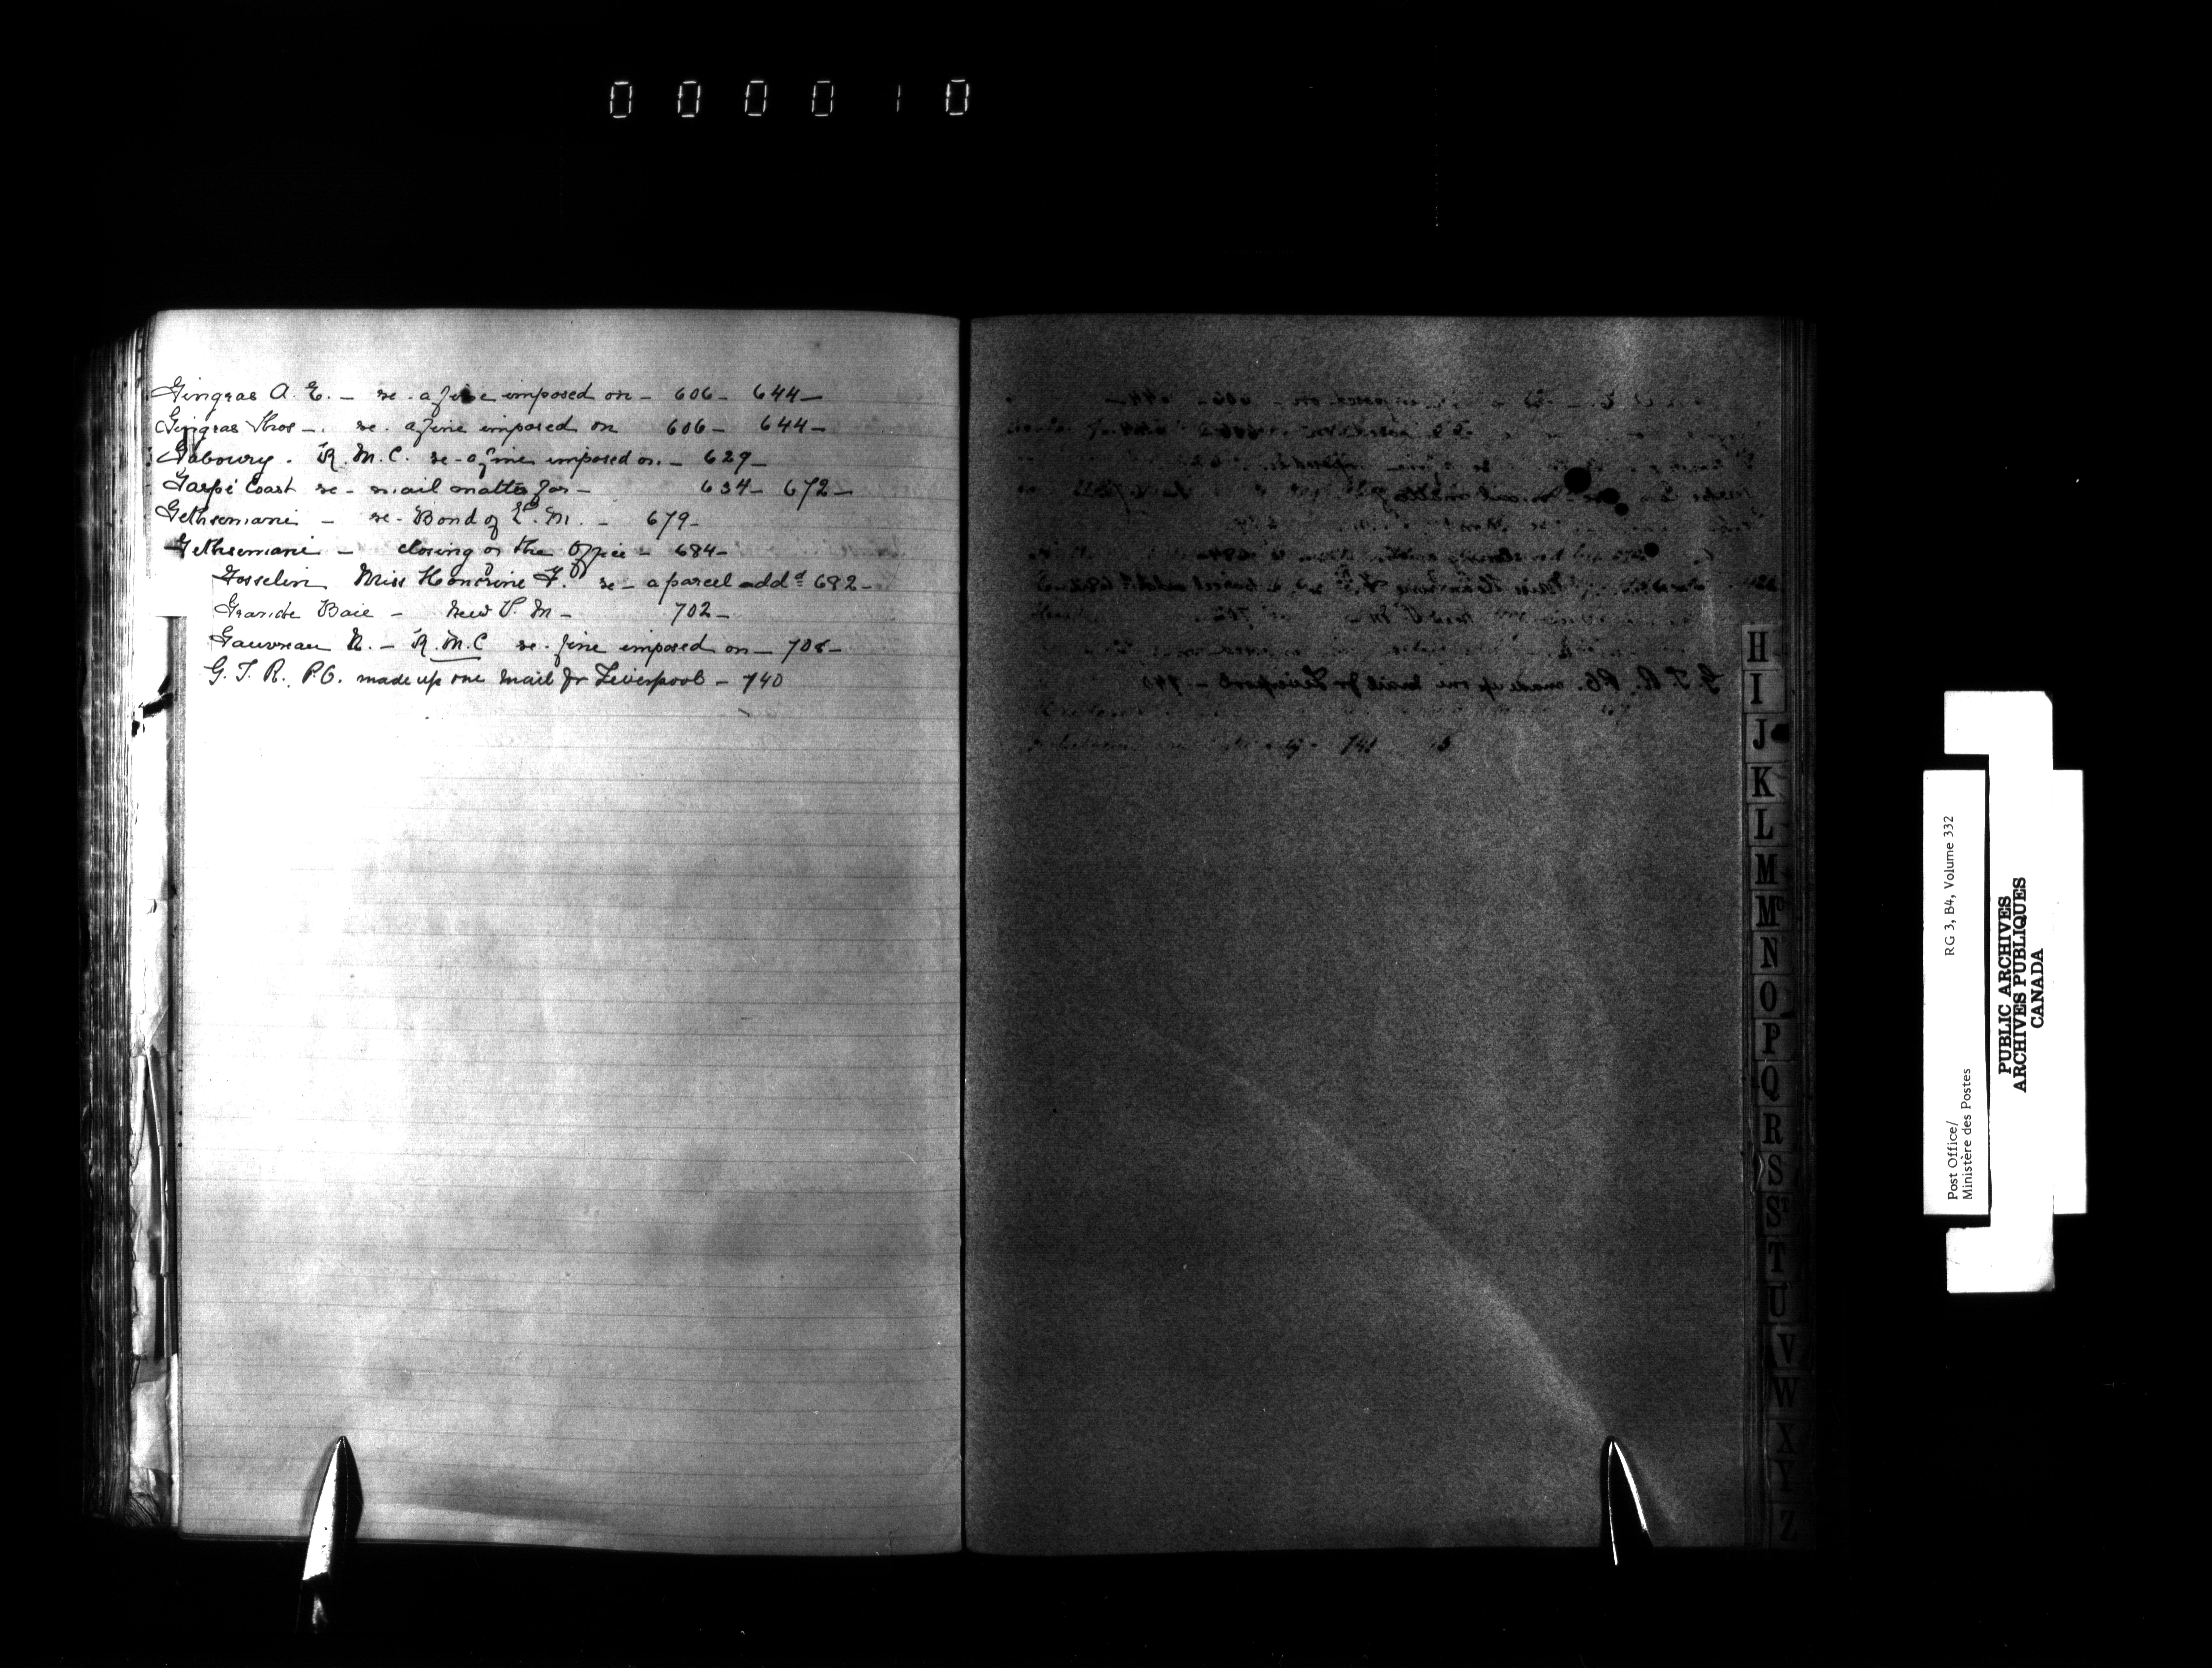 000010
Gingras A. E. – re. a fine imposed on – 606 – 644 –
Gingras Thos –. re. a fine imposed on 606 – 644 –
Gaboury. R.M.C. re – a fine imposed on – 629 –
Gaspé Coast re – mail matter for – 634 – 672 –
Gethsemani – re – Bond of P.M. – 679 –
Gethsemani – closing of the Office – 684 –
Gosselin Miss Honorine F. re – a parcel addd 692 –
Grande Baie – New P.M – 702 –
Gauvreau N. – R.M.C re. fine imposed on – 708 –
G.T.R., P.O. made up one mail for Liverpool – 740
H
I
J
K
L
M
Mc
N
O
P
Q
R
S
ST
T
U
V
W
X
Y
Z
Post Office/
Ministère des Postes
RG 3, B4, Volume 332
PUBLIC ARCHIVES
ARCHIVES PUBLIQUES
CANADA